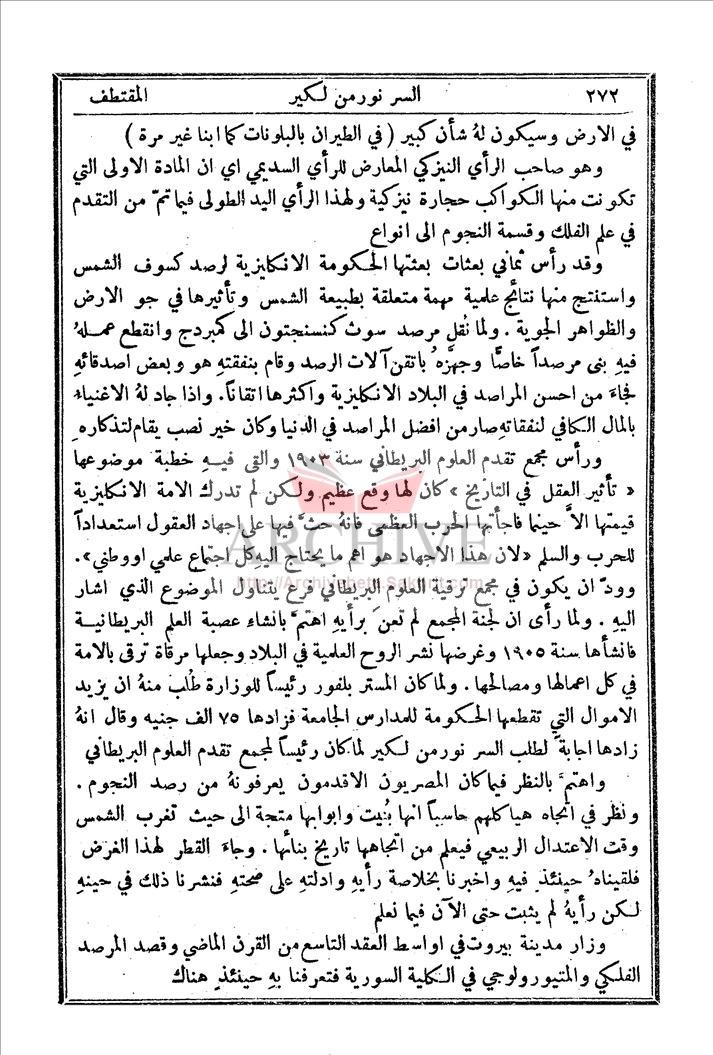 ٢٧٢ السر نورمن لكير المقتطف
في الارض وسيكون لهُ شأن كبير (في الطيران بالبلونات كما ابنا غير مرة)
وهو صاحب الرأي النيزكي المعارض للرأي السديمي اي ان المادة الاولى التي
تكونت منها الكواكب حجارة نيزكية ولهذا الرأي اليد الطولى فيما تمّ من التقدم
في علم الفلك وقسمة النجوم الى انواع
وقد رأس ثماني بعثات بعثتها الحكومة الانكليزية لرصد كسوف الشمس
واستنتج منها نتائج علمية مهمة متعلقة بطبيعة الشمس وتأثيرها في جو الارض
والظواهر الجوية . ولما نُقل مرصد سوث كنسنجتون الى كمبردج وانقطع عملهُ
فيهِ بنى مرصداً خاصًّا وجهزهُ باتقن آلات الرصد وقام بنفقتهِ هو وبعض اصدقائهِ
فجاءَ من احسن المراصد في البلاد الانكليزية واكثرها اتقاناً. واذا جاد لهُ الاغنياء
بالمال الكافي لنفقاتهِ صار من افضل المراصد في الدنيا وكان خير نصب يقام لتذكاره
ورأس مجمع تقدم العلوم البريطاني سنة ١٩٠٣ والقى فيهِ خطبة موضوعها
« تأثير العقل في التاريخ » كان لها وقع عظيم ولكن لم تدرك الامة الانكليزية
قيمتها الاَّ حينما فاجأتها الحرب العظمى فانهُ حثَّ فيها على اجهاد العقول استعداداً
للحرب والسلم «لان هذا الاجهاد هو اهم ما يحتاج اليهِ كل اجتماع علمي او وطني».
وودَّ ان يكون في مجمع ترقية العلوم البريطاني فرع يتناول الموضوع الذي اشار
اليهِ . ولما رأى ان لجنة المجمع لم تعن برأيهِ اهتمَّ بانشاء عصبة العلم البريطانية
فانشأها سنة ١٩٠٥ وغرضها نشر الروح العلمية في البلاد وجعلها مرقاة ترقى بالامة
في كل اعمالها ومصالحها . ولما كان المستر بلفور رئيساً للوزارة طُلب منهُ ان يزيد
الاموال التي تقطعها الحكومة للمدارس الجامعة فزادها ٧٥ الف جنيه وقال انهُ
زادها اجابةً لطلب السر نورمن لكير لما كان رئيساً لمجمع تقدم العلوم البريطاني
واهتمَّ بالنظر فيما كان المصريون الاقدمون يعرفونهُ من رصد النجوم .
ونظر في اتجاه هياكلهم حاسباً انها بُنيت وابوابها متجة الى حيث تغرب الشمس
وقت الاعتدال الربيعي فيعلم من اتجاهها تاريخ بنائها . وجاءَ القطر لهذا الغرض
فلقيناهُ حينئذٍ فيهِ واخبرنا بخلاصة رأيهِ وادلتهِ على صحتهِ فنشرنا ذلك في حينهِ
لكن رأيهُ لم يثبت حتى الآن فيما نعلم
وزار مدينة بيروت في اواسط العقد التاسع من القرن الماضي وقصد المرصد
الفلكي والمتيورولوجي في الكلية السورية فتعرفنا بهِ حينئذٍ هناك
ARCHIVE